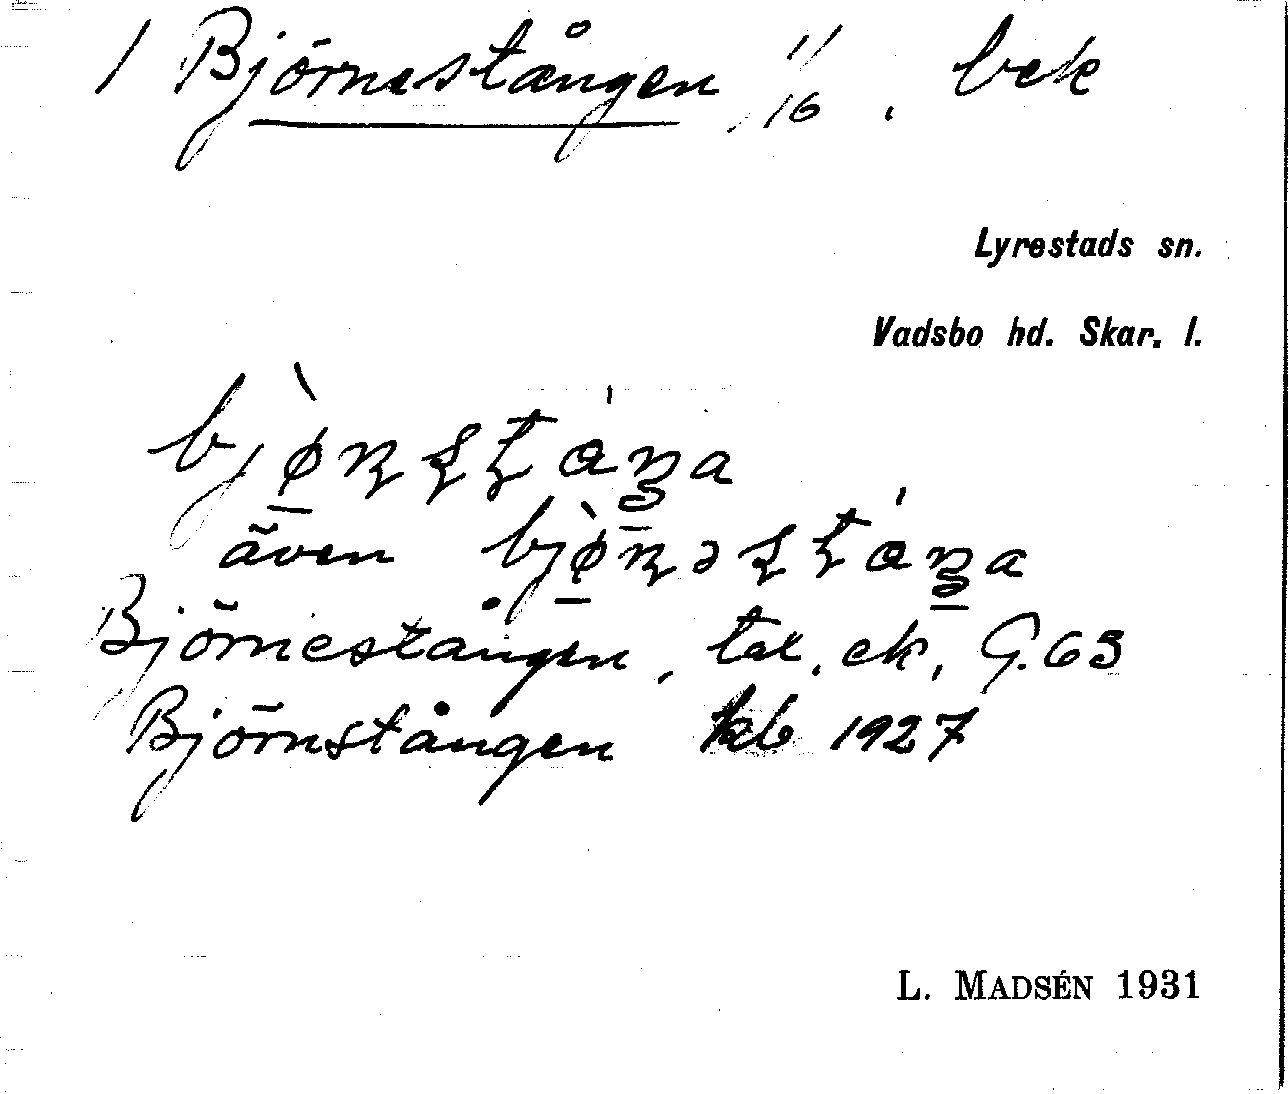 1 Björnestången 11/16. bek
Lyrestads sn.
Vadsbo hd. Skar. l.
även
Björnestången, tal, ek, G. 63
Björnstången kb 1927
L. MADSÉN 1931